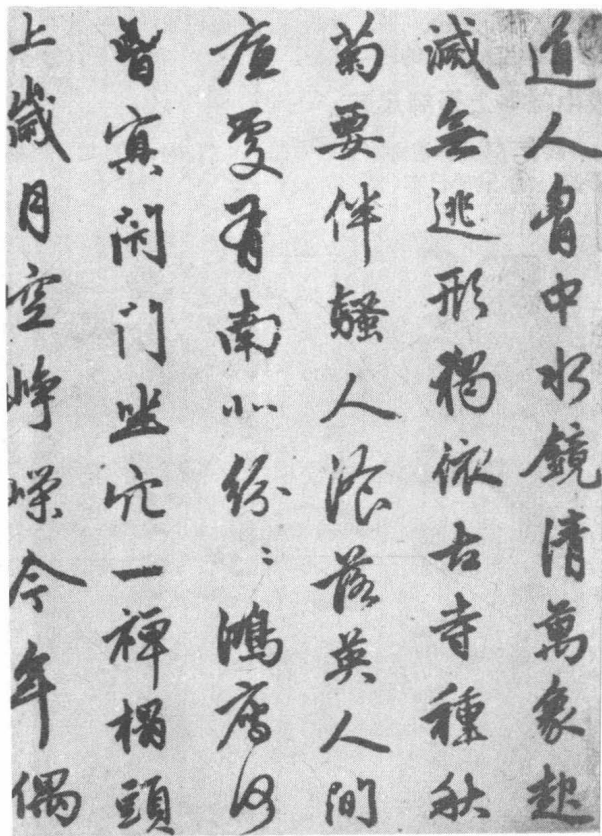 道人胷中水鏡清萬象起
滅無逃形獨依古寺種秋
菊要伴騷人飡落英人間
底處有南北紛〻鴻雁何
曾冥閉門坐穴一禪榻頭
上歲月空崢嶸今年偶